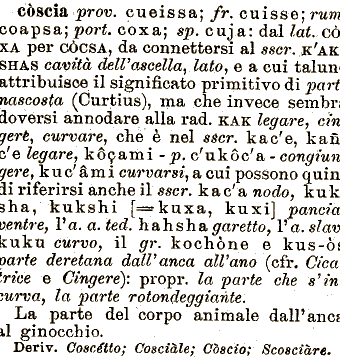 còscia prov. cueissa; fr. cuisse; rum
coapsa; port. coxa; sp. cuja: dal lat. cò
XA per còCSA, da connettersi al sscr. K'AK
SHAS cavità dell'ascella, lato, e a cui talun
attribuisce il significato primitivo di part
nascosta (Curtius), ma che invece sembr
doversi annodare alla rad. KAK legare, cin
gere, curvare, che è nel sscr. kac'e, kañ
c'e legare, kôçami - p. c'ukôc'a - congiun
gere, kuc'âmi curvarsi, a cui possono quin
di riferirsi anche il sscr. kac'a nodo, kuk
sha, kukshi [=kuxa, kuxi] pancia
ventre, l'a. a. ted. hahsha garetto, l'a. slav
kuku curvo, il gr. kochòne e kus-òs
parte deretana dall'anca all'ano (cfr. Cica
trice e Cingere): propr. la parte che s'in
curva, la parte rotondeggiante.
La parte del corpo animale dall'anca
al ginocchio.
Deriv. Coscétto; Cosciàle; Còscio; Scosciàre.